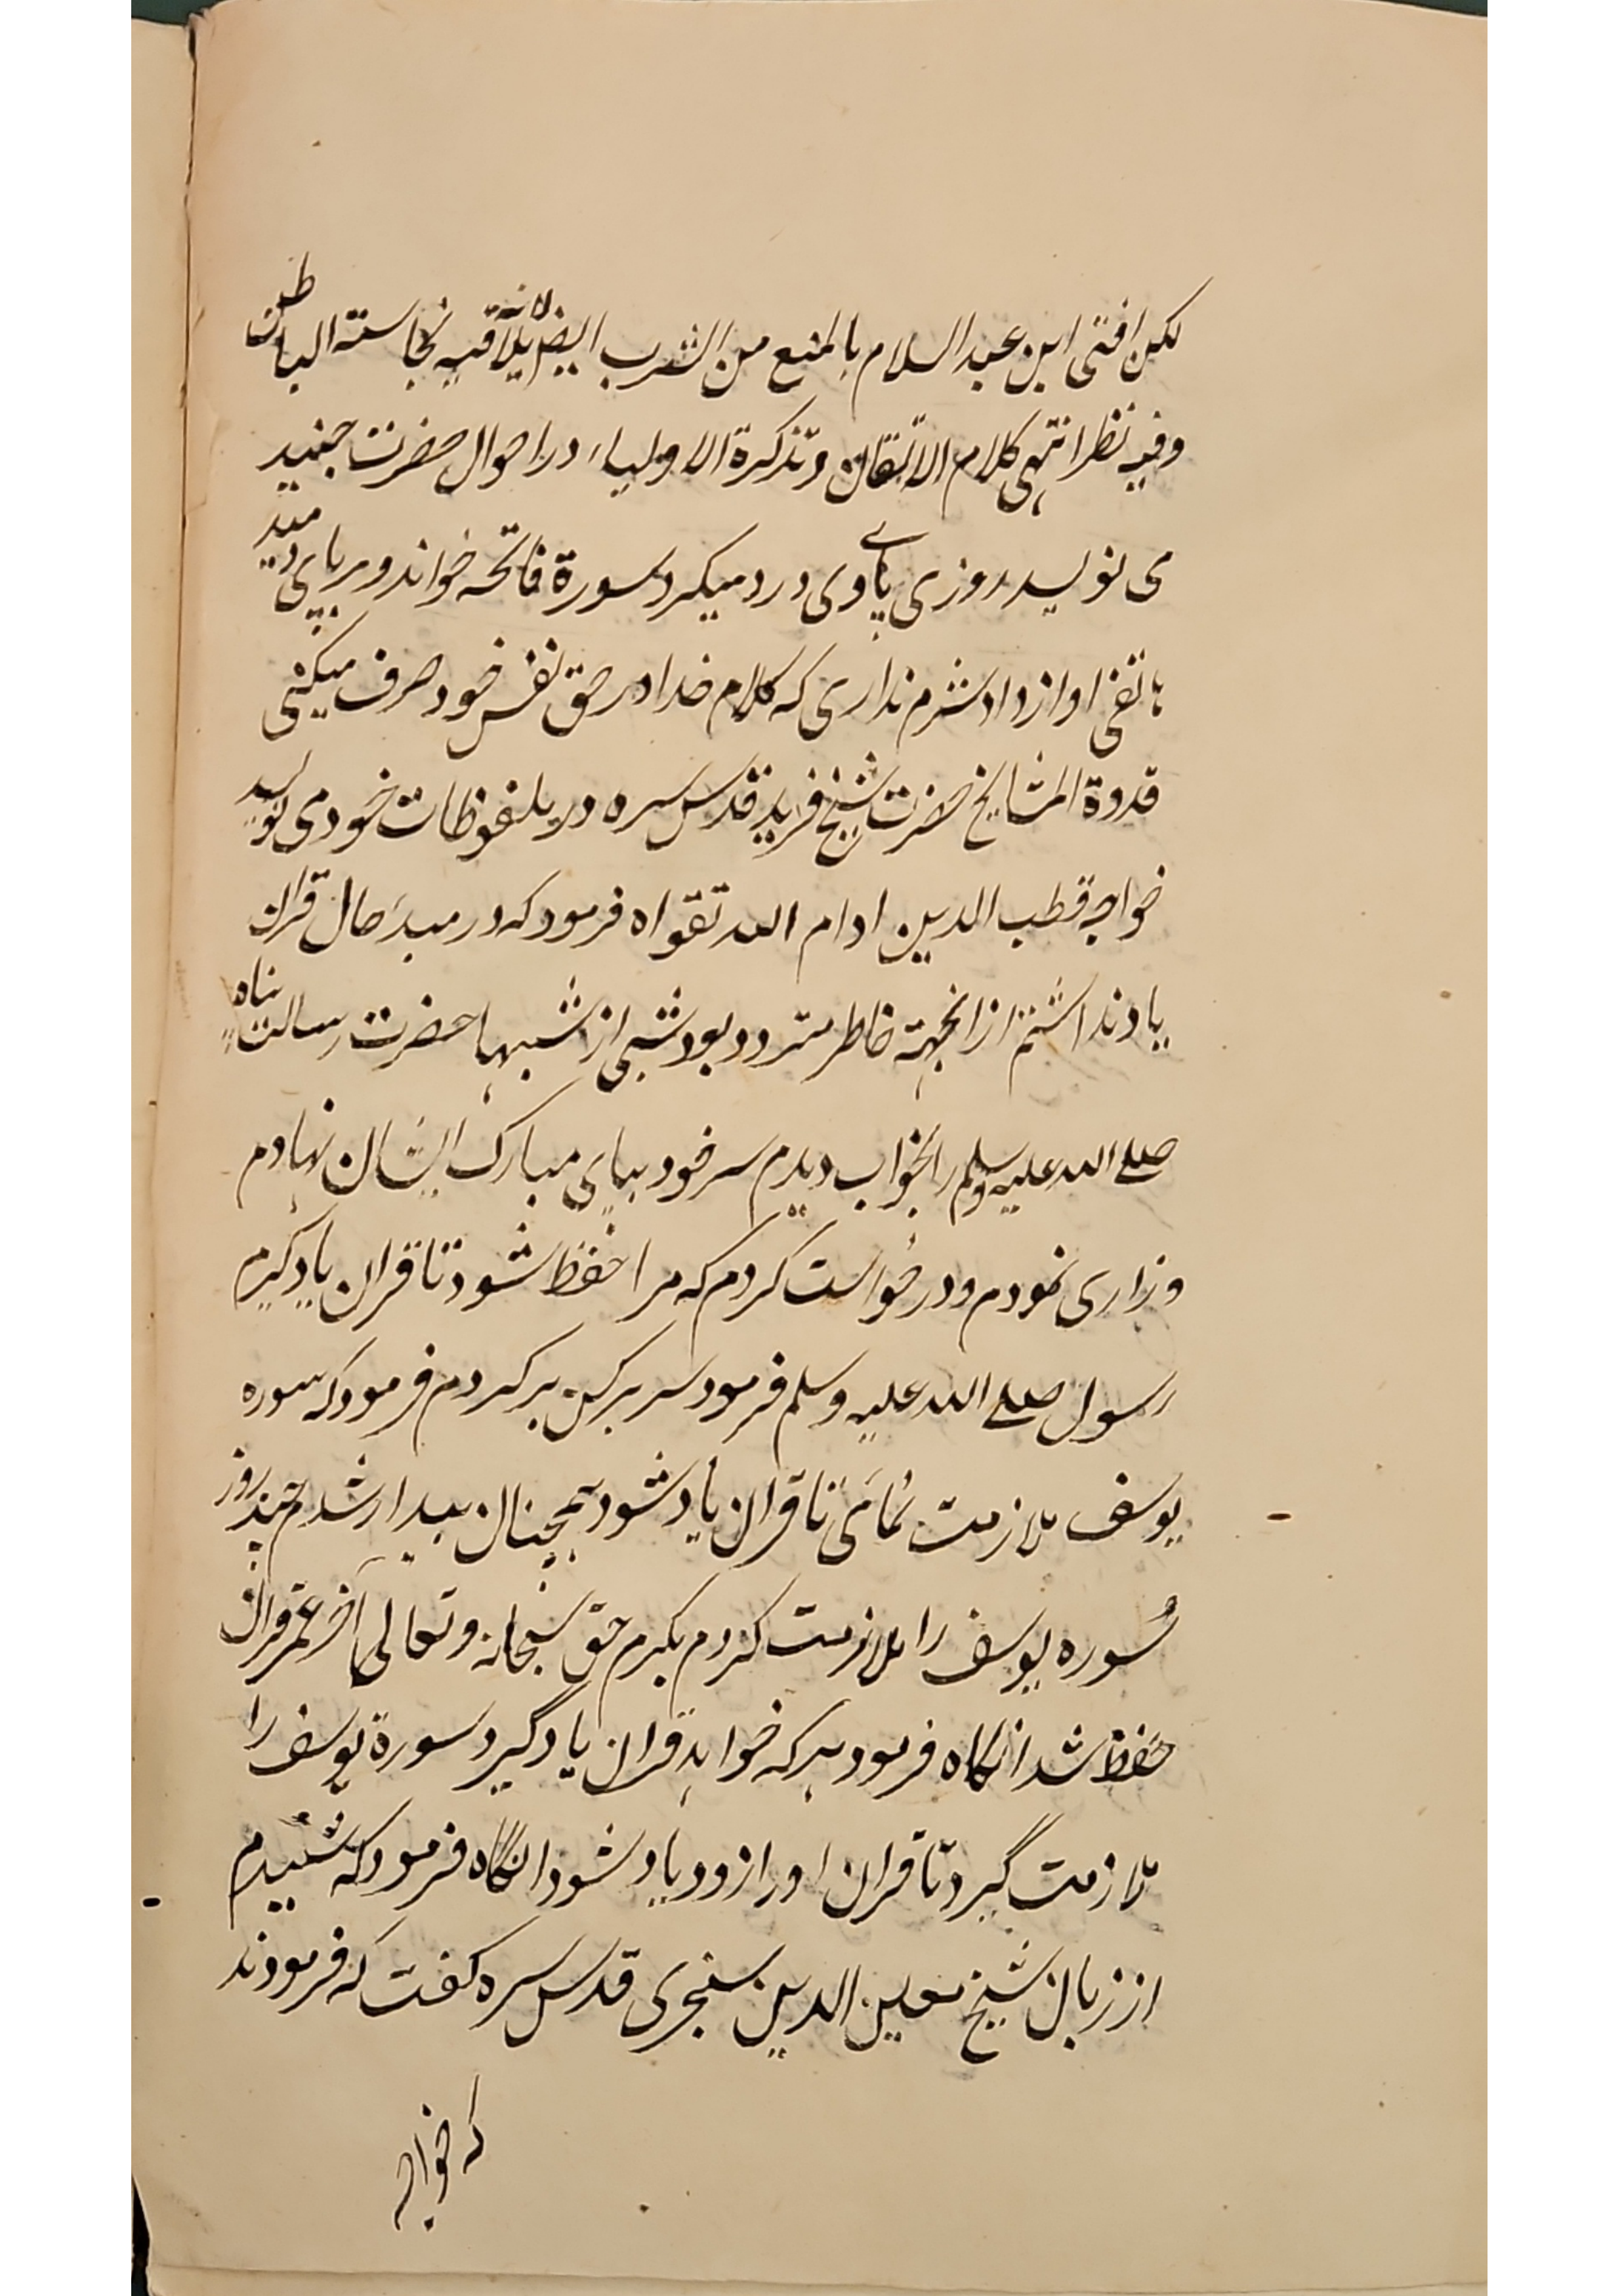 لکن افتی ابن عبد السلام بالمنع من الشرب ایضا لانه یلاقیه نجاسته الباطن
وفیه نظر انتهی کلام الاتقان و تذکرة الاولیاء در احوال حضرت جنید
می نویسد روزی پای وی درد میکرد سورة فاتحه خواند و بر پای دمید
هاتفی اواز داد شرم نداری که کلام خدا در حق نفس خود صرف میکنی
قدوة المشایخ حضرت شیخ فرید قدس سره در ملفوظات خود می نویسد
خواجه قطب الدین ادام الله تقواه فرمود که در مبدء حال قران
یاد نداشتم ازانجهة خاطر متردد بود شبی از شبها حضرت رسالت پناه
صلی الله علیه وسلم را بخواب دیدم سر خود بپای مبارک ایشان نهادم
و زاری نمودم و درخواست کردم که مرا حفظ شود تا قران یاد گیرم
رسول صلی الله علیه وسلم فرمود سر بر کن بر کردم فرمود که سوره
یوسف ملازمت نمائی تا قران یاد شود همچنان بیدار شدم چند روز
سوره یوسف را ملازمت کردم بکرم حق سبحانه وتعالی آخر عمر قران
حفظ شد انکاه فرمود هر که خواهد قران یاد گیرد سورة یوسف را
ملازمت گیرد تا قران او را زود یاد شود انگاه فرمود که شنیدم
از زبان شیخ معین الدین سنجری قدس سره کفت که فرمودند
که خواجه